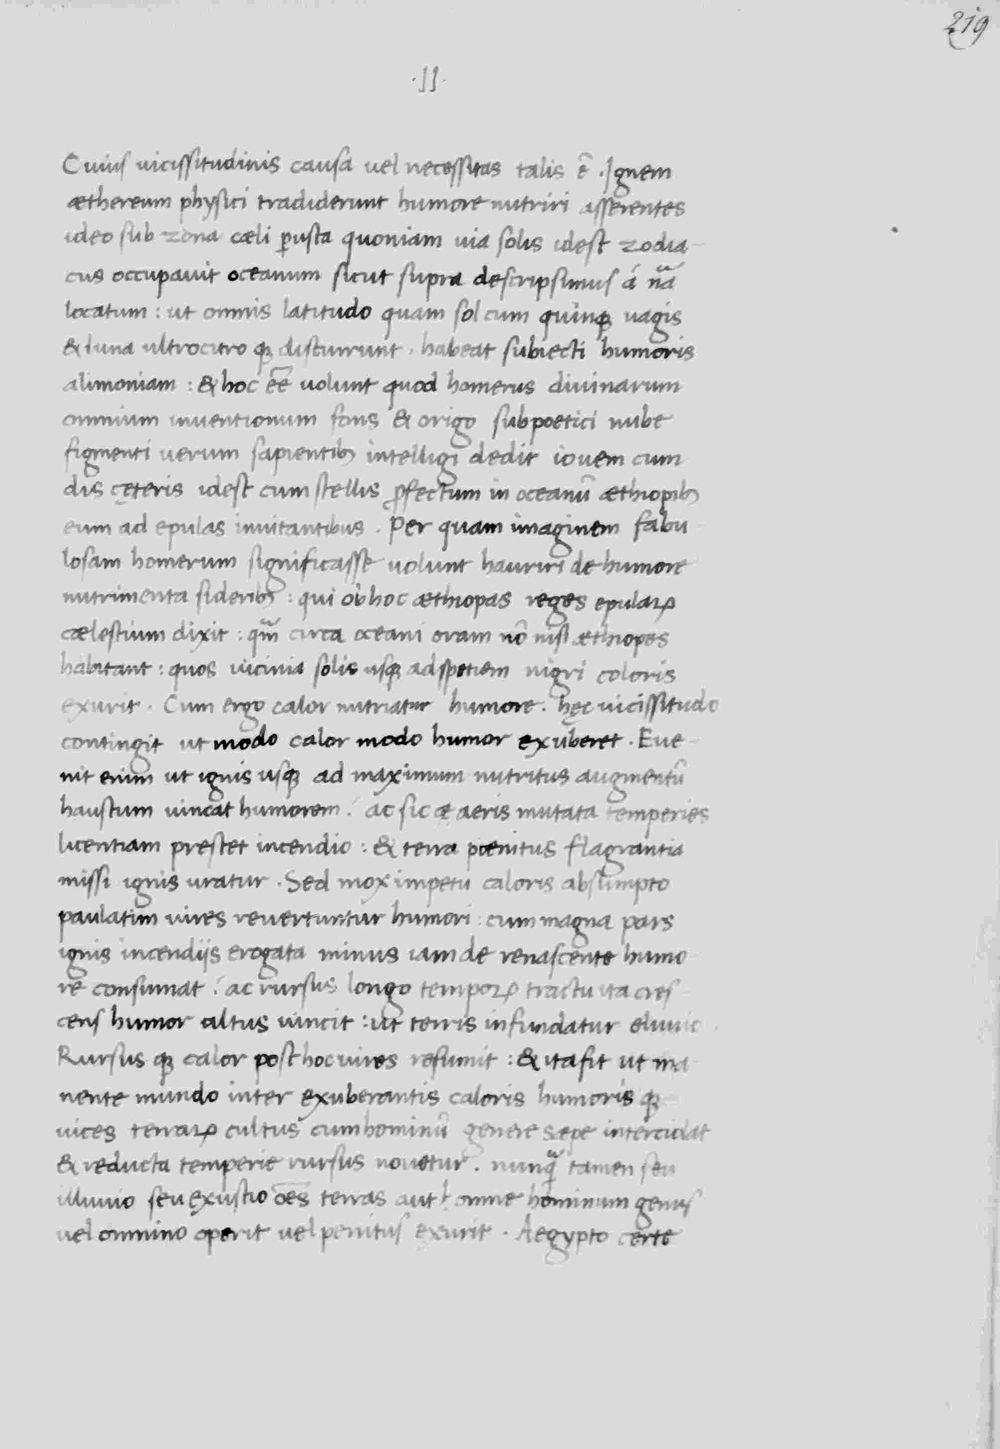 219
·II·
Cuius vicissitudinis causa vel necessitas talis ē. Ignem
æthereum physici tradiderunt humore nutriri asserentes
ideo sub zona cæli ꝑusta quoniam via solis idest zodia-
cus occupavit oceanum sicut supra descripsimus á nr̃a
locatum : ut omnis latitudo quam sol cum quinqꝫ vagis
& luna ultrocitro qꝫ discurrunt . habeat subiecti humoris
alimoniam : & hoc eē̃ volunt quod homerus divinarum
omnium inventionum fons & origo sub poetici nube
figmenti verum sapientibꝫ intelligi dedit iovem cum
dis cęteris idest cum stellis ꝓfectum in oceanū æthiopibꝫ
eum ad epulas invitantibus . Per quam imaginem fabu-
losam homerum significasse volunt hauriri de humore
nutrimenta sideribꝫ : qui ob hoc æthiopas reges epulaꝝ
cælestium dixit : qm̃ circa oceani oram nō nisi æthiopes
habitant : quos vicinia solis usqꝫ ad spetiem nigri coloris
exurit . Cum ergo calor nutriatur humore . hęc vicissitudo
contingit ut modo calor modo humor exuberet . Eve-
nit enim ut ignis usqꝫ ad maximum nutritus augmentū
haustum vincat humorem : ac sic æ aeris mutata temperies
licentiam prestet incendio : & terra pœnitus flagrantia
missi ignis uratur . Sed mox impetu caloris absumpto
paulatim vires revertuntur humori : cum magna pars
ignis incendijs erogata minus iam de renascente humo
re consumat : ac rursus longo tempoꝝ tractu ita cres-
cens humor altus vincit : ut terris infundatur eluvio .
Rursus qꝫ calor post hoc vires resumit : & ita fit ut ma-
nente mundo inter exuberantis caloris humoris qꝫ
vices terraꝝ cultus cum hominū genere sæpe intercidat
& reducta temperie rursus novetur . nunq̃ tamen seu
illuvio seu exustio oēs terras aut omne hominum genus
vel omnino operit vel penitus exurit . Aegypto certe